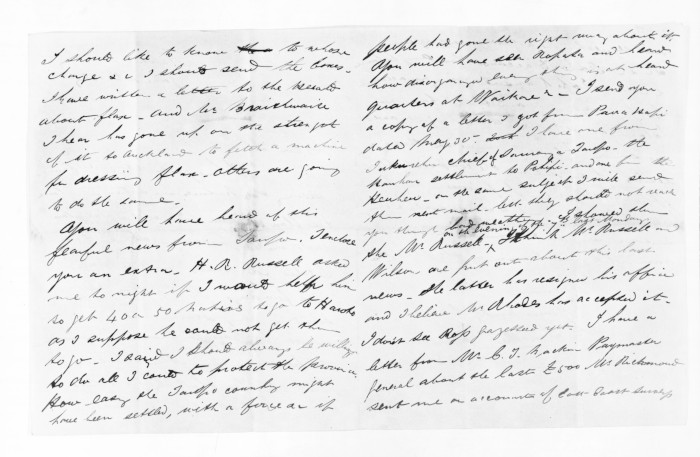 I should like to know to whose
charge &c I should send the boxes.
I have written a letter to the Herald
about flax - and Mr Braithwaite
I hear has gone up on the strength
of it to Auckland to fetch a machine
for dressing flax. Others are going
to do the same.
You will have heard of this
fearful news from Taupo. I enclose
you an extra. H. R. Russell asked
me to night if I would help him
to get 40 or 50 Natives to go to
as I suppose he could not get them
to go - I said I should always be willing
to do all I could to protect the Province.
How easy the Taupo country might
have been settled, with a force or if
people had gone the right way about it
You will have seen Ropata and heard
how disorganized every thing is at head
quarters at Wairoa - I send you
a copy of a letter I got from
dated May 30. I have one from
chief of Tauranga Taupo. the
Hauhau settlement to and me from the
Heuheu - on the same subject I will send
them next mail. lest they should not reach
you though had meeting
on the evening of last Monday
I showed them
the Mr Russell, I think Mr Russell and
Wilson are put out about this last
news - the latter has resigned his office
and I believe Mr Rhodes has accepted it -
I don't see Ross gazetted yet. I have a
letter from Mr C. T. Paymaster
General about the last £500 Mr Richmond
sent me on accounts of East Coast surveys